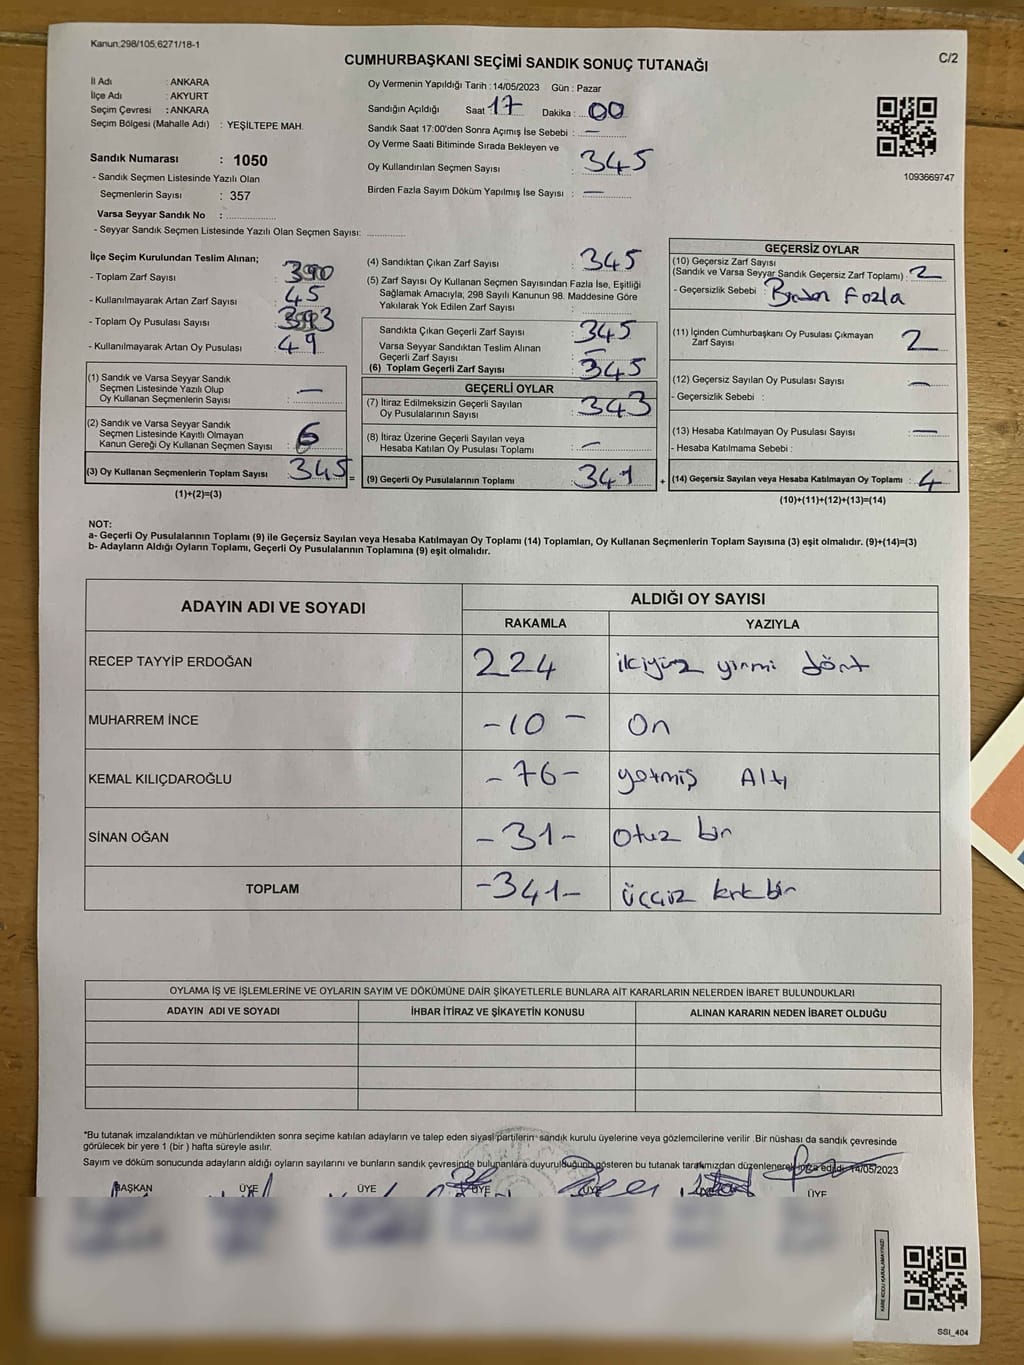 Kanun;298/105,6271/18-1
C/2
CUMHURBAŞKANI SEÇİMİ SANDIK SONUÇ TUTANAĞI
İl Adı : ANKARA
İlçe Adı : AKYURT
Seçim Çevresi : ANKARA
Seçim Bölgesi (Mahalle Adı) : YEŞİLTEPE MAH.
Sandık Numarası : 1050
- Sandık Seçmen Listesinde Yazılı Olan
Seçmenlerin Sayısı : 357
Varsa Seyyar Sandık No :
- Seyyar Sandık Seçmen Listesinde Yazılı Olan Seçmen Sayısı:
Oy Vermenin Yapıldığı Tarih : 14/05/2023 Gün : Pazar
Sandığın Açıldığı Saat : 17 Dakika : 00
Sandık Saat 17:00'den Sonra Açımış İse Sebebi : —
Oy Verme Saati Bitiminde Sırada Bekleyen ve
Oy Kullandırılan Seçmen Sayısı : 345
Birden Fazla Sayım Döküm Yapılmış İse Sayısı : —
1093669747
İlçe Seçim Kurulundan Teslim Alınan;
- Toplam Zarf Sayısı : 390
- Kullanılmayarak Artan Zarf Sayısı : 45
- Toplam Oy Pusulası Sayısı :
- Kullanılmayarak Artan Oy Pusulası : 49
(1) Sandık ve Varsa Seyyar Sandık
Seçmen Listesinde Yazılı Olup
Oy Kullanan Seçmenlerin Sayısı : —
(2) Sandık ve Varsa Seyyar Sandık
Seçmen Listesinde Kayıtlı Olmayan
Kanun Gereği Oy Kullanan Seçmen Sayısı : 6
(3) Oy Kullanan Seçmenlerin Toplam Sayısı : 345 =
(1)+(2)=(3)
(4) Sandıktan Çıkan Zarf Sayısı : 345
(5) Zarf Sayısı Oy Kullanan Seçmen Sayısından Fazla İse, Eşitliği
Sağlamak Amacıyla, 298 Sayılı Kanunun 98. Maddesine Göre
Yakılarak Yok Edilen Zarf Sayısı :
Sandıkta Çıkan Geçerli Zarf Sayısı : 345
Varsa Seyyar Sandıktan Teslim Alınan
Geçerli Zarf Sayısı : —
(6) Toplam Geçerli Zarf Sayısı : 345
GEÇERLİ OYLAR
(7) İtiraz Edilmeksizin Geçerli Sayılan
Oy Pusulalarının Sayısı : 343
(8) İtiraz Üzerine Geçerli Sayılan veya
Hesaba Katılan Oy Pusulası Toplamı : —
(9) Geçerli Oy Pusulalarının Toplamı : 341 +
GEÇERSİZ OYLAR
(10) Geçersiz Zarf Sayısı
(Sandık ve Varsa Seyyar Sandık Geçersiz Zarf Toplamı) : 2
- Geçersizlik Sebebi : Birden Fazla
(11) İçinden Cumhurbaşkanı Oy Pusulası Çıkmayan
Zarf Sayısı : 2
(12) Geçersiz Sayılan Oy Pusulası Sayısı : —
- Geçersizlik Sebebi :
(13) Hesaba Katılmayan Oy Pusulası Sayısı : —
- Hesaba Katılmama Sebebi :
(14) Geçersiz Sayılan veya Hesaba Katılmayan Oy Toplamı : 4
(10)+(11)+(12)+(13)=(14)
NOT:
a- Geçerli Oy Pusulalarının Toplamı (9) ile Geçersiz Sayılan veya Hesaba Katılmayan Oy Toplamı (14) Toplamları, Oy Kullanan Seçmenlerin Toplam Sayısına (3) eşit olmalıdır. (9)+(14)=(3)
b- Adayların Aldığı Oyların Toplamı, Geçerli Oy Pusulalarının Toplamına (9) eşit olmalıdır.
ADAYIN ADI VE SOYADI ALDIĞI OY SAYISI
RAKAMLA YAZIYLA
RECEP TAYYİP ERDOĞAN 224 ikiyüz yirmi dört
MUHARREM İNCE -10- On
KEMAL KILIÇDAROĞLU -76- yetmiş Altı
SİNAN OĞAN -31- Otuz bir
TOPLAM -341- üççüz kırk bir
OYLAMA İŞ VE İŞLEMLERİNE VE OYLARIN SAYIM VE DÖKÜMÜNE DAİR ŞİKAYETLERLE BUNLARA AİT KARARLARIN NELERDEN İBARET BULUNDUKLARI
ADAYIN ADI VE SOYADI İHBAR İTİRAZ VE ŞİKAYETİN KONUSU ALINAN KARARIN NEDEN İBARET OLDUĞU
*Bu tutanak imzalandıktan ve mühürlendikten sonra seçime katılan adayların ve talep eden siyasi partilerin sandık kurulu üyelerine veya gözlemcilerine verilir .Bir nüshası da sandık çevresinde
görülecek bir yere 1 (bir ) hafta süreyle asılır.
Sayım ve döküm sonucunda adayların aldığı oyların sayılarını ve bunların sandık çevresinde bulunanlara duyurulduğunu gösteren bu tutanak tarafımızdan düzenlenerek imza edildi. 14/05/2023
BAŞKAN ÜYE ÜYE ÜYE ÜYE ÜYE
KARE KODU KARALAMAYINIZ!
SSI_404